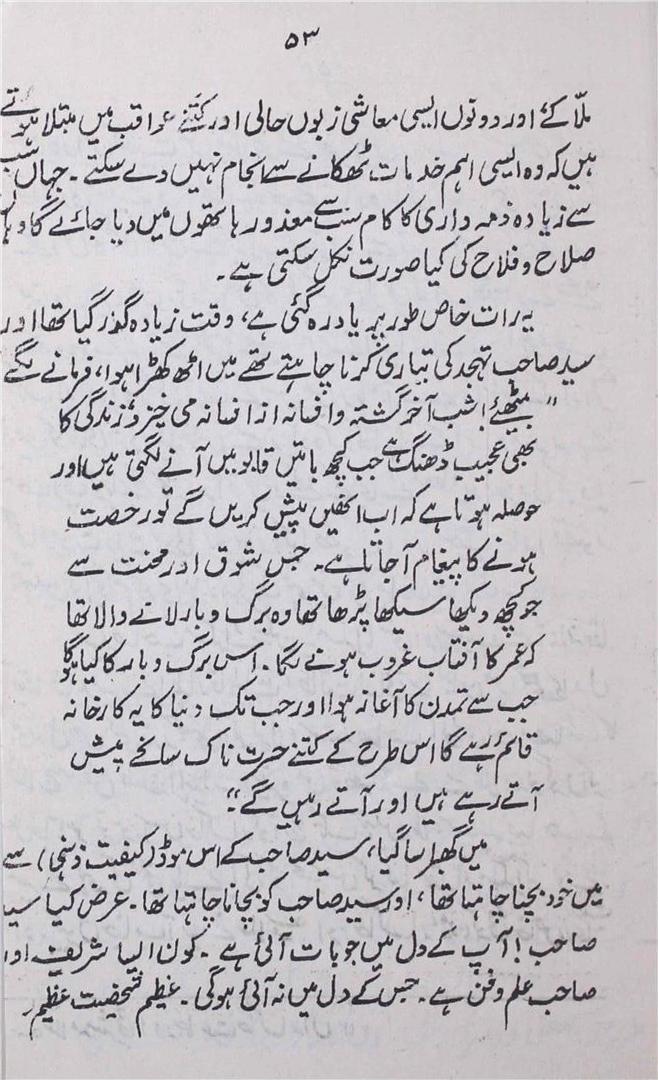 ۵۳
ملّا کے اور دونوں ایسی معاشی زبوں حالی اور کتنے عواقب میں مبتلا ہوتے
ہیں کہ وہ ایسی اہم خدمات ٹھکانے سے انجام نہیں دے سکتے۔ جہاں سب
سے زیادہ ذمہ داری کا کام سب سے معذور ہاتھوں میں دیا جائے گا وہاں
صلاح و فلاح کی کیا صورت نکل سکتی ہے۔
یہ رات خاص طور پر یاد رہ گئی ہے، وقت زیادہ گزر گیا تھا اور
سید صاحب تہجد کی تیاری کرنا چاہتے تھے میں اٹھ کھڑا ہوا، فرمانے لگے
" بیٹھئے! شب آخر گشتہ و افسانہ از افسانہ می خیزد، زندگی کا
بھی عجیب ڈھنگ ہے جب کچھ باتیں قابو میں آنے لگتی ہیں اور
حوصلہ ہوتا ہے کہ اب انھیں پیش کریں گے تو رخصت
ہونے کا پیغام آجاتا ہے۔ جس شوق اور محنت سے
جو کچھ دیکھا سیکھا پڑھا تھا وہ برگ و بار لانے والا تھا
کہ عمر کا آفتاب غروب ہونے لگا۔ اس برگ و بار کا کیا ہوگا
جب سے تمدن کا آغاز ہوا اور جب تک دنیا کا یہ کارخانہ
قائم رہے گا اس طرح کے کتنے حسرت ناک سانحے پیش
آتے رہے ہیں اور آتے رہیں گے"۔
میں گھبرا سا گیا، سید صاحب کے اس موڈ (کیفیت ذہنی) سے
میں خود بچنا چاہتا تھا، اور سید صاحب کو بچانا چاہتا تھا۔ عرض کیا سید
صاحب! آپ کے دل میں جو بات آئی ہے۔ کون ایسا شریف اور
صاحب علم و فن ہے۔ جس کے دل میں نہ آئی ہوگی۔ عظیم شخصیت عظیم